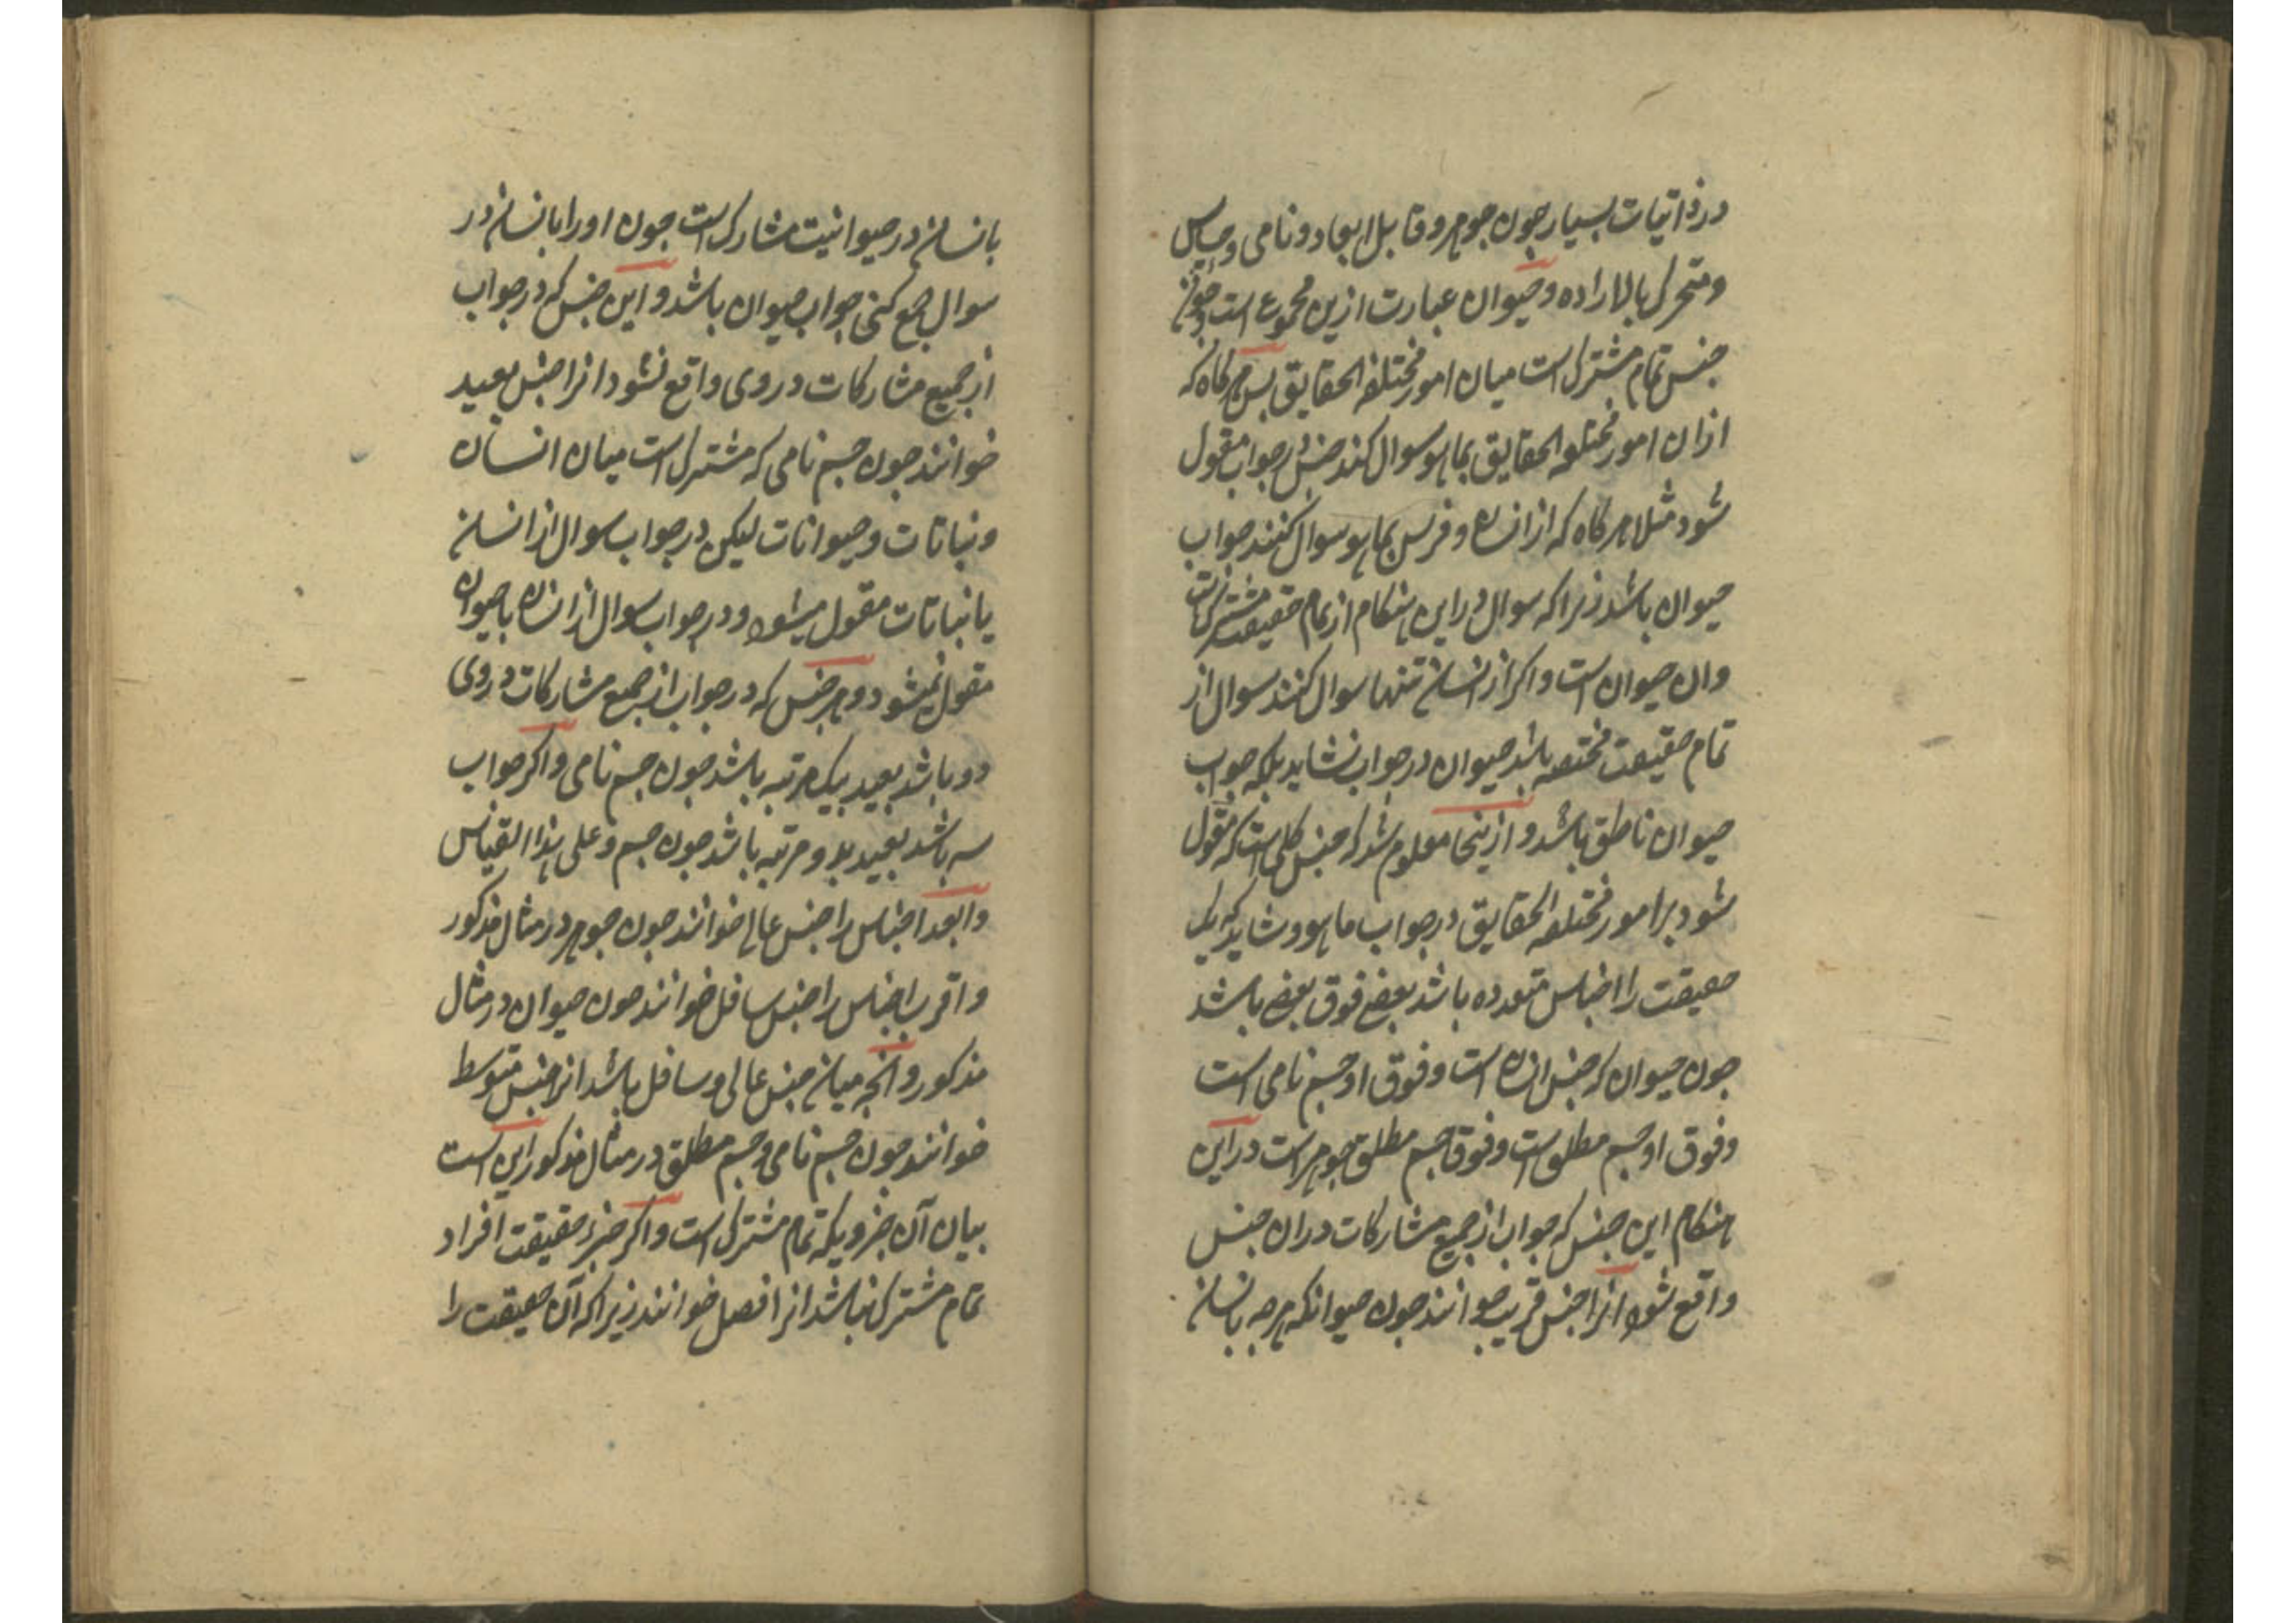 در ذاتیات بسیار جون جوهر و قابل ابعاد و نامی و حساس
و متحرک بالاراده و حیوان عبارت ازین مجموع است و جون
جنس تمام مشترک است میان امور مختلفه الحقایق بس هرکاه که
ازان امور مختلفه الحقایق بما هو سوال کنند جنس در جواب مقول
شود مثلا هرکاه که از انسان و فرس بما هو سوال کنند جواب
حیوان باشد زیرا که سوال در این هنکام از تمام حقیقت مشترک است
وان حیوان است و اکر از انسان تنها سوال کنند سوال از
تمام حقیقت مختصه باشد حیوان در جواب نشاید بلکه جواب
حیوان ناطق باشد و از ینجا معلوم شد که جنس کلی است که مقول
شود بر امور مختلفه الحقایق در جواب ما هو و شاید که یک
حقیقت را اجناس متعدده باشد بعضی فوق بعضی باشد
جون حیوان که جنس انسان است و فوق او جسم نامی است
و فوق او جسم مطلق است و فوق جسم مطلق جوهر است در این
هنکام این جنس که جواب از جمیع مشارکات دران جنس
واقع شود انرا جنس قریب خوانند جون حیوان که هرجه بانسان
بانسان در حیوانیت مشارک است جون او را بانسان در
سوال جمع کنی جواب حیوان باشد و این جنس که در جواب
از جمیع مشارکات در وی واقع نشود انرا جنس بعید
خوانند جون جسم نامی که مشترک است میان انسان
و نباتات و حیوانات لیکن در جواب سوال از انسان
یا نباتات مقول میشود و در جواب سوال از انسان با حیوان
مقول نمیشود و هر جنس که در جواب از جمیع مشارکات در وی
دو باشد بعید بیک مرتبه باشد جون جسم نامی و اکر جواب
سه باشد بعید بدو مرتبه باشد جون جسم و علی هذا القیاس
و ابعد اجناس را جنس عالی خوانند جون جوهر در مثال مذکور
و اقرب اجناس را جنس سافل خوانند جون حیوان در مثال
مذکور و انجه میان جنس عالی و سافل باشد انرا جنس متوسط
خوانند جون جسم نامی و جسم مطلق در مثال مذکور این است
بیان آن جزویکه تمام مشترک است و اکر جزء حقیقت افراد
تمام مشترک نباشد انرا فصل خوانند زیرا که آن حقیقت را